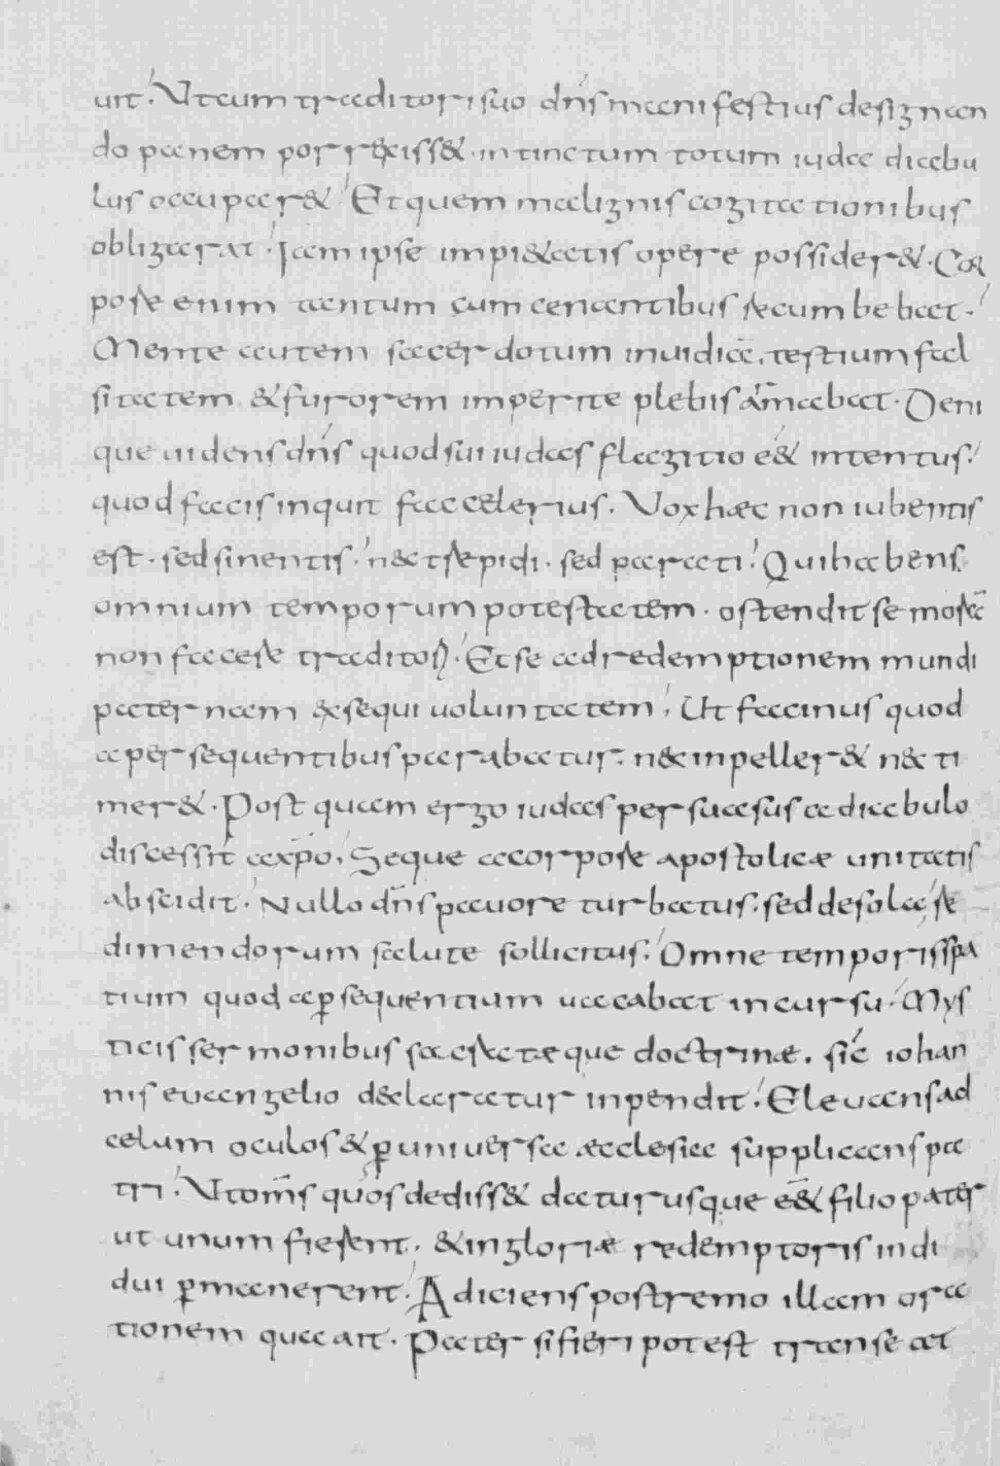 uit. Ut cum traditori suo dn̄s manifestius designan
do panem porrexiss&. intinctum totum iudā diabu
lus occupar&. Et quem malignis cogitationibus
obligarat. Iam ipse impi&atis opere possider&. Cor
pore enim tantum cum cenantibus recumbebat.
Mente autem sacerdotum inuidiā. testium fal
sitatem &furorem imperite plebis arm̄abat. Deni
que uidens dn̄s quod sui iudas flagitio ēē& intentus.
quod facis inquit fac celerius. Vox haec non iubentis
est. sed sinentis. nec trepidi. sed parati. Qui habens
omnium temporum potestatem. ostendit se morā
non facere traditori. Et se ad redemptionem mundi
paternam exsequi uoluntatem. Ut facinus quod
a persequentibus parabatur. nec inpeller& nec ti
mer&. Post quam ergo iudas persuasus a diabulo
discessit a xp̄o. Seque a corpore apostolicae unitatis
abscidit. Nullo dn̄s pauore turbatus. sed de sola re
dimendorum salute sollicitus. Omne temporis spa
tium quod a ꝑsequentium uacabat incursu. Mys
ticis sermonibus sacrae que doctrinae. sic iohan
nis euangelio declaratur inpendit. Eleuans ad
celum oculos & ꝑ uniuersa aecclesia supplicans pa
tri. Ut om̄s quos dediss& daturusque ēē& filio pater
ut unum fierent. & in gloriae redemptoris indi
dui ꝑmanerent. Adiciens postremo illam ora
tionem qua ait. Pater si fieri potest transeat